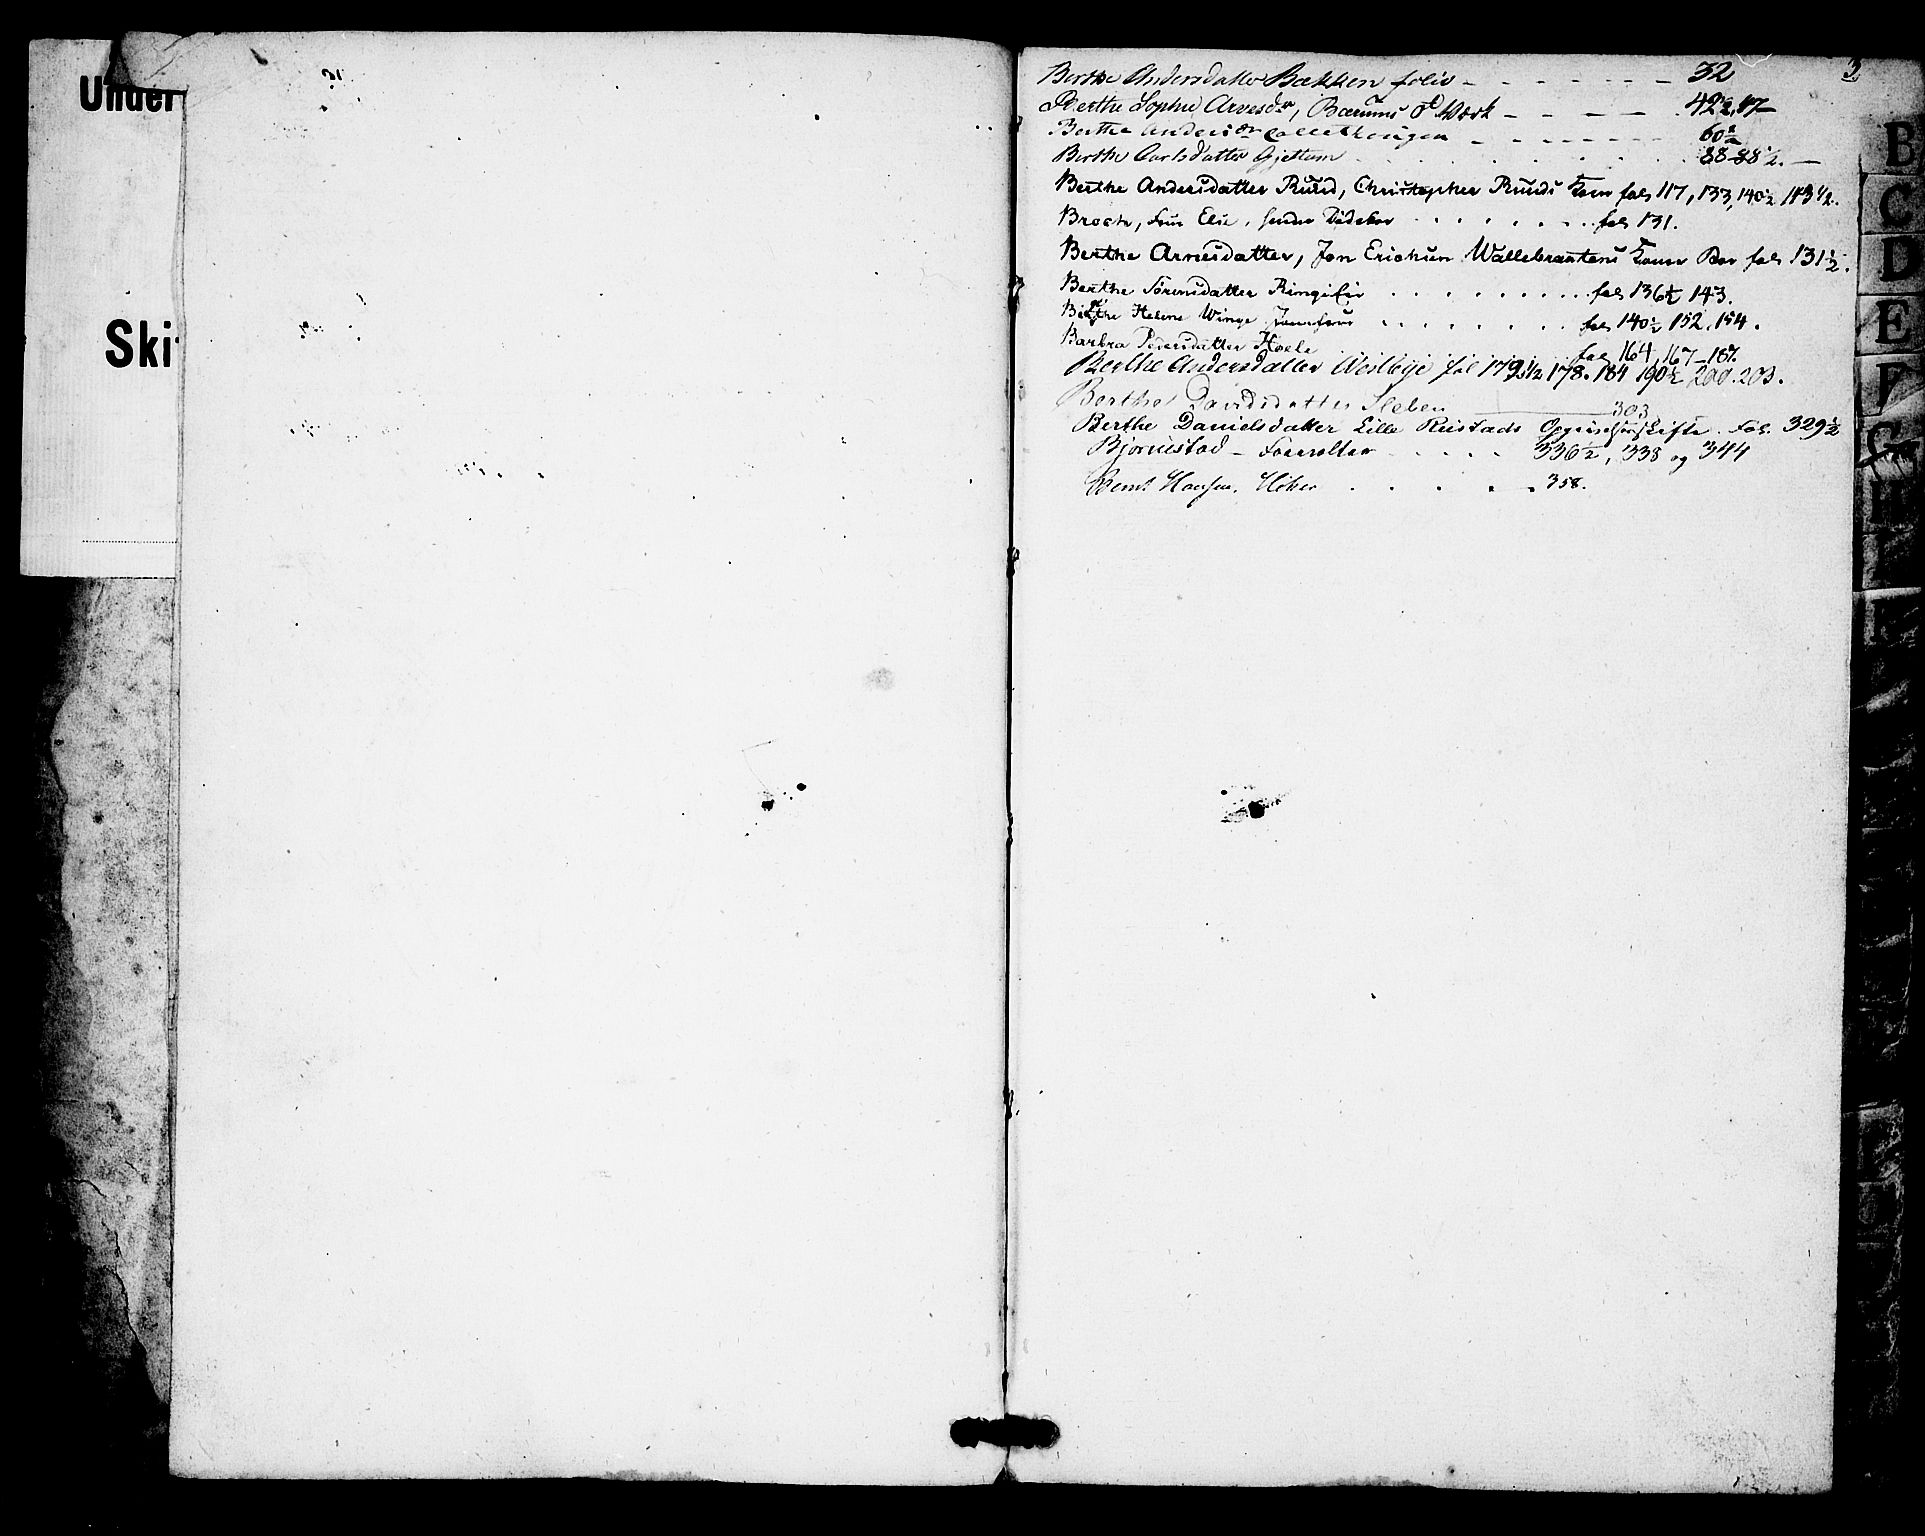 Under
Ski
3.
Berthe Andersdatter Bækken folio - - - - - - - 32
Berthe Sophie Arnesdr, Bærums Værk - - - - 42½, 47-
Berthe Andersdr - - - - - - - 60½
Berthe Carlsdatter Gjettum . . . . . . . 88-88½. -
Berthe Andersdatter Ruud, Christopher Ruuds Kone fol 117, 133, 140½ 143½.
Broch, Fru Else, . . . . . . fol 131.
Berthe Arnesdatter, Jon Erichsen Wallebraatens Kone Bær fol 131½.
Berthe Sørensdatter Ringi . . . . . . . . . fol 136½ 143.
Birthe Helene Winge Jomfrue . . . . . . . fol 140½ 152, 154.
Barbra Pedersdatter Hoele fol 164, 167-187.
Berthe Andersdatter Westbye fol 179½ 178. 184 190½ 200. 203.
Berthe Davidsdatter Sleben 303
Berthe Danielsdatter Lille Rustads Skifte. Fol. 329½
Bjørnestad - Forvalter . . . . . 336½, 338 og 344
Bernt Hansen, Høker . . . . . 358.
B
C
D
E
F
G
H